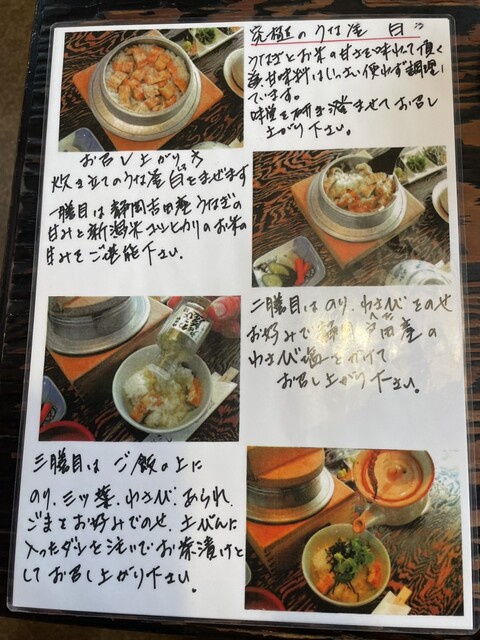 究極のうな釜 白
うなぎとお米の甘さを味わって頂く
為、甘味料はいっさい使わず調理し
ています。
味覚を研ぎ澄ませてお召し
上がり下さい。
お召し上がり方
炊き立てのうな釜白をまぜます
一膳目は静岡吉田産うなぎの
甘みと新潟米コシヒカリのお米の
甘みをご堪能下さい。
二膳目はのり、わさびをのせ
お好みで静岡 産の
わさび塩をかけて
お召し上がり下さい。
三膳目は ご飯の上に
のり、三ッ葉、わさび、あられ、
ごまをお好みでのせ、土びんに
入ったダシを注いでお茶漬けと
してお召し上がり下さい。